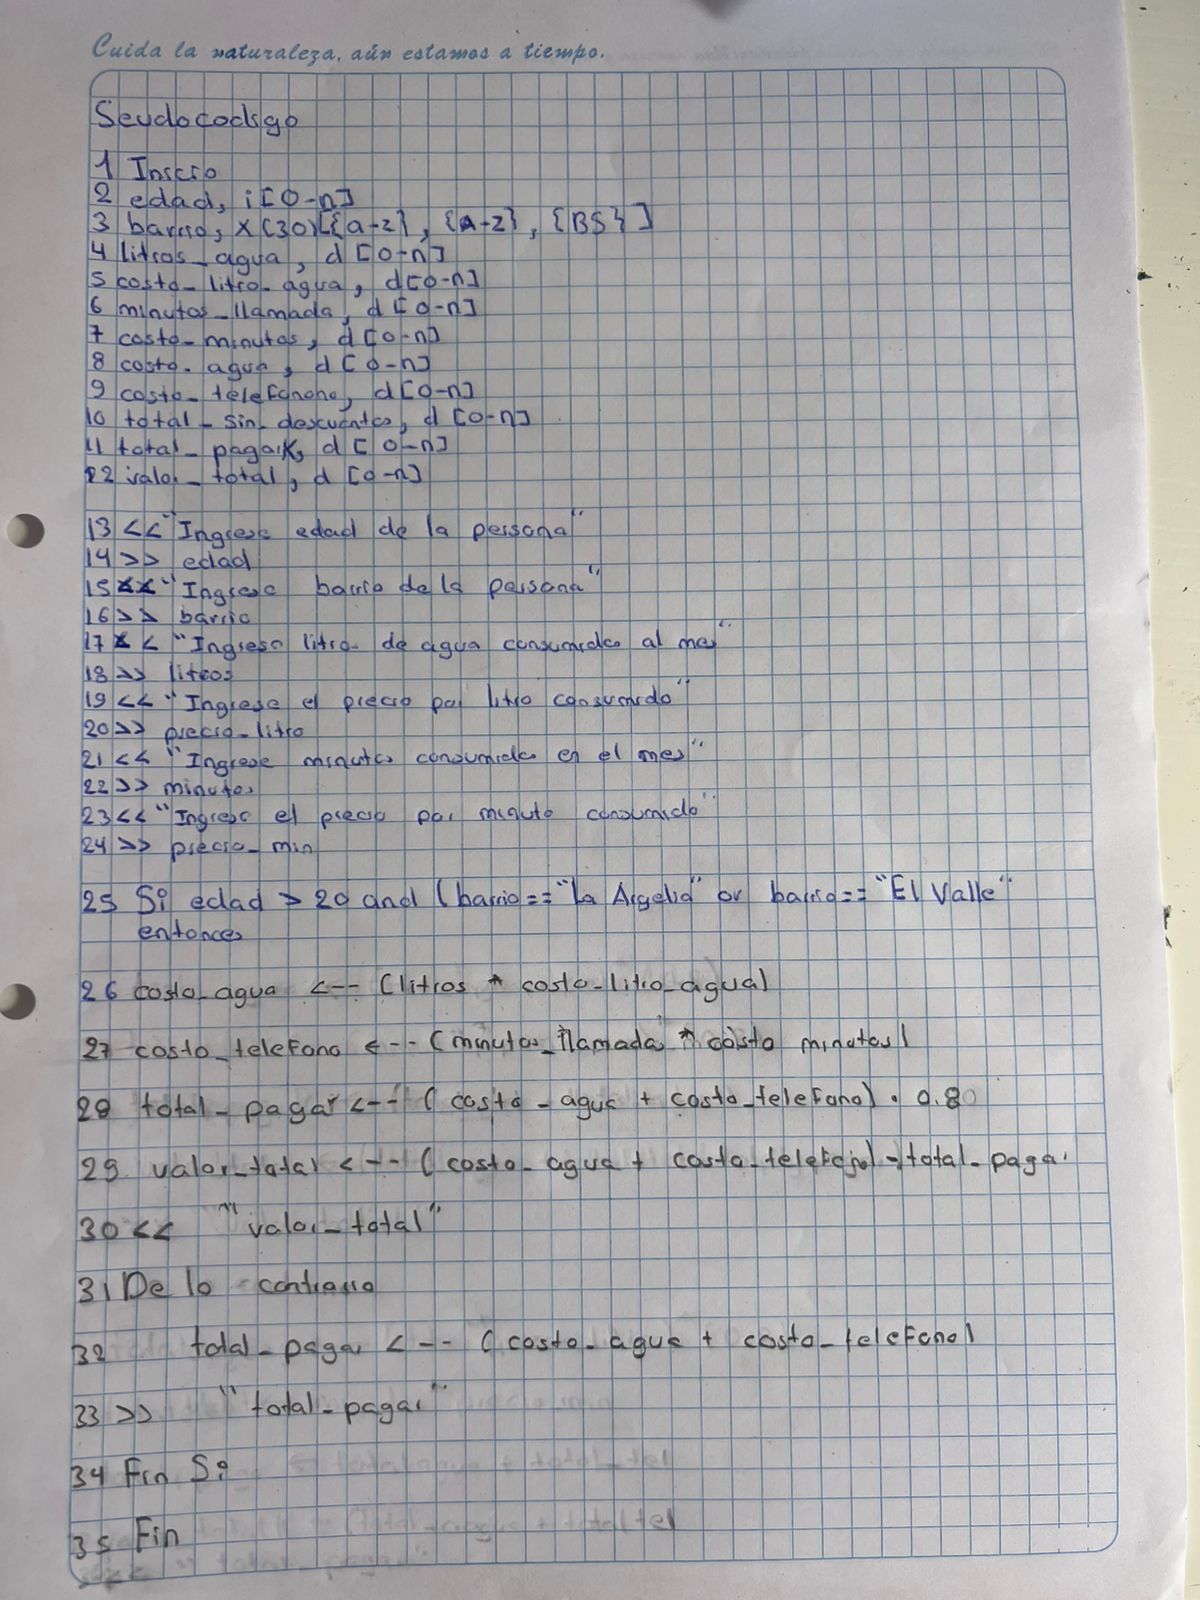 Cuida la naturaleza, aún estamos a tiempo.
Seudocodigo
1 Inicio
2 edad, i[0-n]
3 barrio, X(30)[{a-z}, {A-z}, {BS}]
4 litros_agua, d [0-n]
5 costo_litro_agua, d[0-n]
6 minutos_llamada, d [0-n]
7 costo_minutos, d [0-n]
8 costo_agua, d [0-n]
9 costo_telefonono, d[0-n]
10 total_sin_descuento, d [0-n]
11 total_pagar, d [0-n]
12 valor_total, d [0-n]
13 << "Ingrese edad de la persona"
14 >> edad
15 << "Ingrese barrio de la persona"
16 >> barrio
17 << "Ingrese litro de agua consumido al mes"
18 >> litros
19 << "Ingrese el precio por litro consumido"
20 >> precio_litro
21 << "Ingrese minuto consumido en el mes"
22 >> minutos
23 << "Ingrese el precio por minuto consumido"
24 >> precio_min
25 Si edad > 20 and (barrio == "La Argelia" or barrio == "El Valle"
entonces
26 costo_agua <-- (litros * costo_litro_agua)
27 costo_telefono <-- (minutos_llamada * costo minutos)
28 total_pagar <-- (costo_agua + costo_telefono) * 0.80
29 valor_total <-- (costo_agua + costo_telefono) - total_pagar
30 << "valor_total"
31 De lo contrario
32 total_pagar <-- (costo_agua + costo_telefono)
33 >> "total_pagar"
34 Fin Si
35 Fin